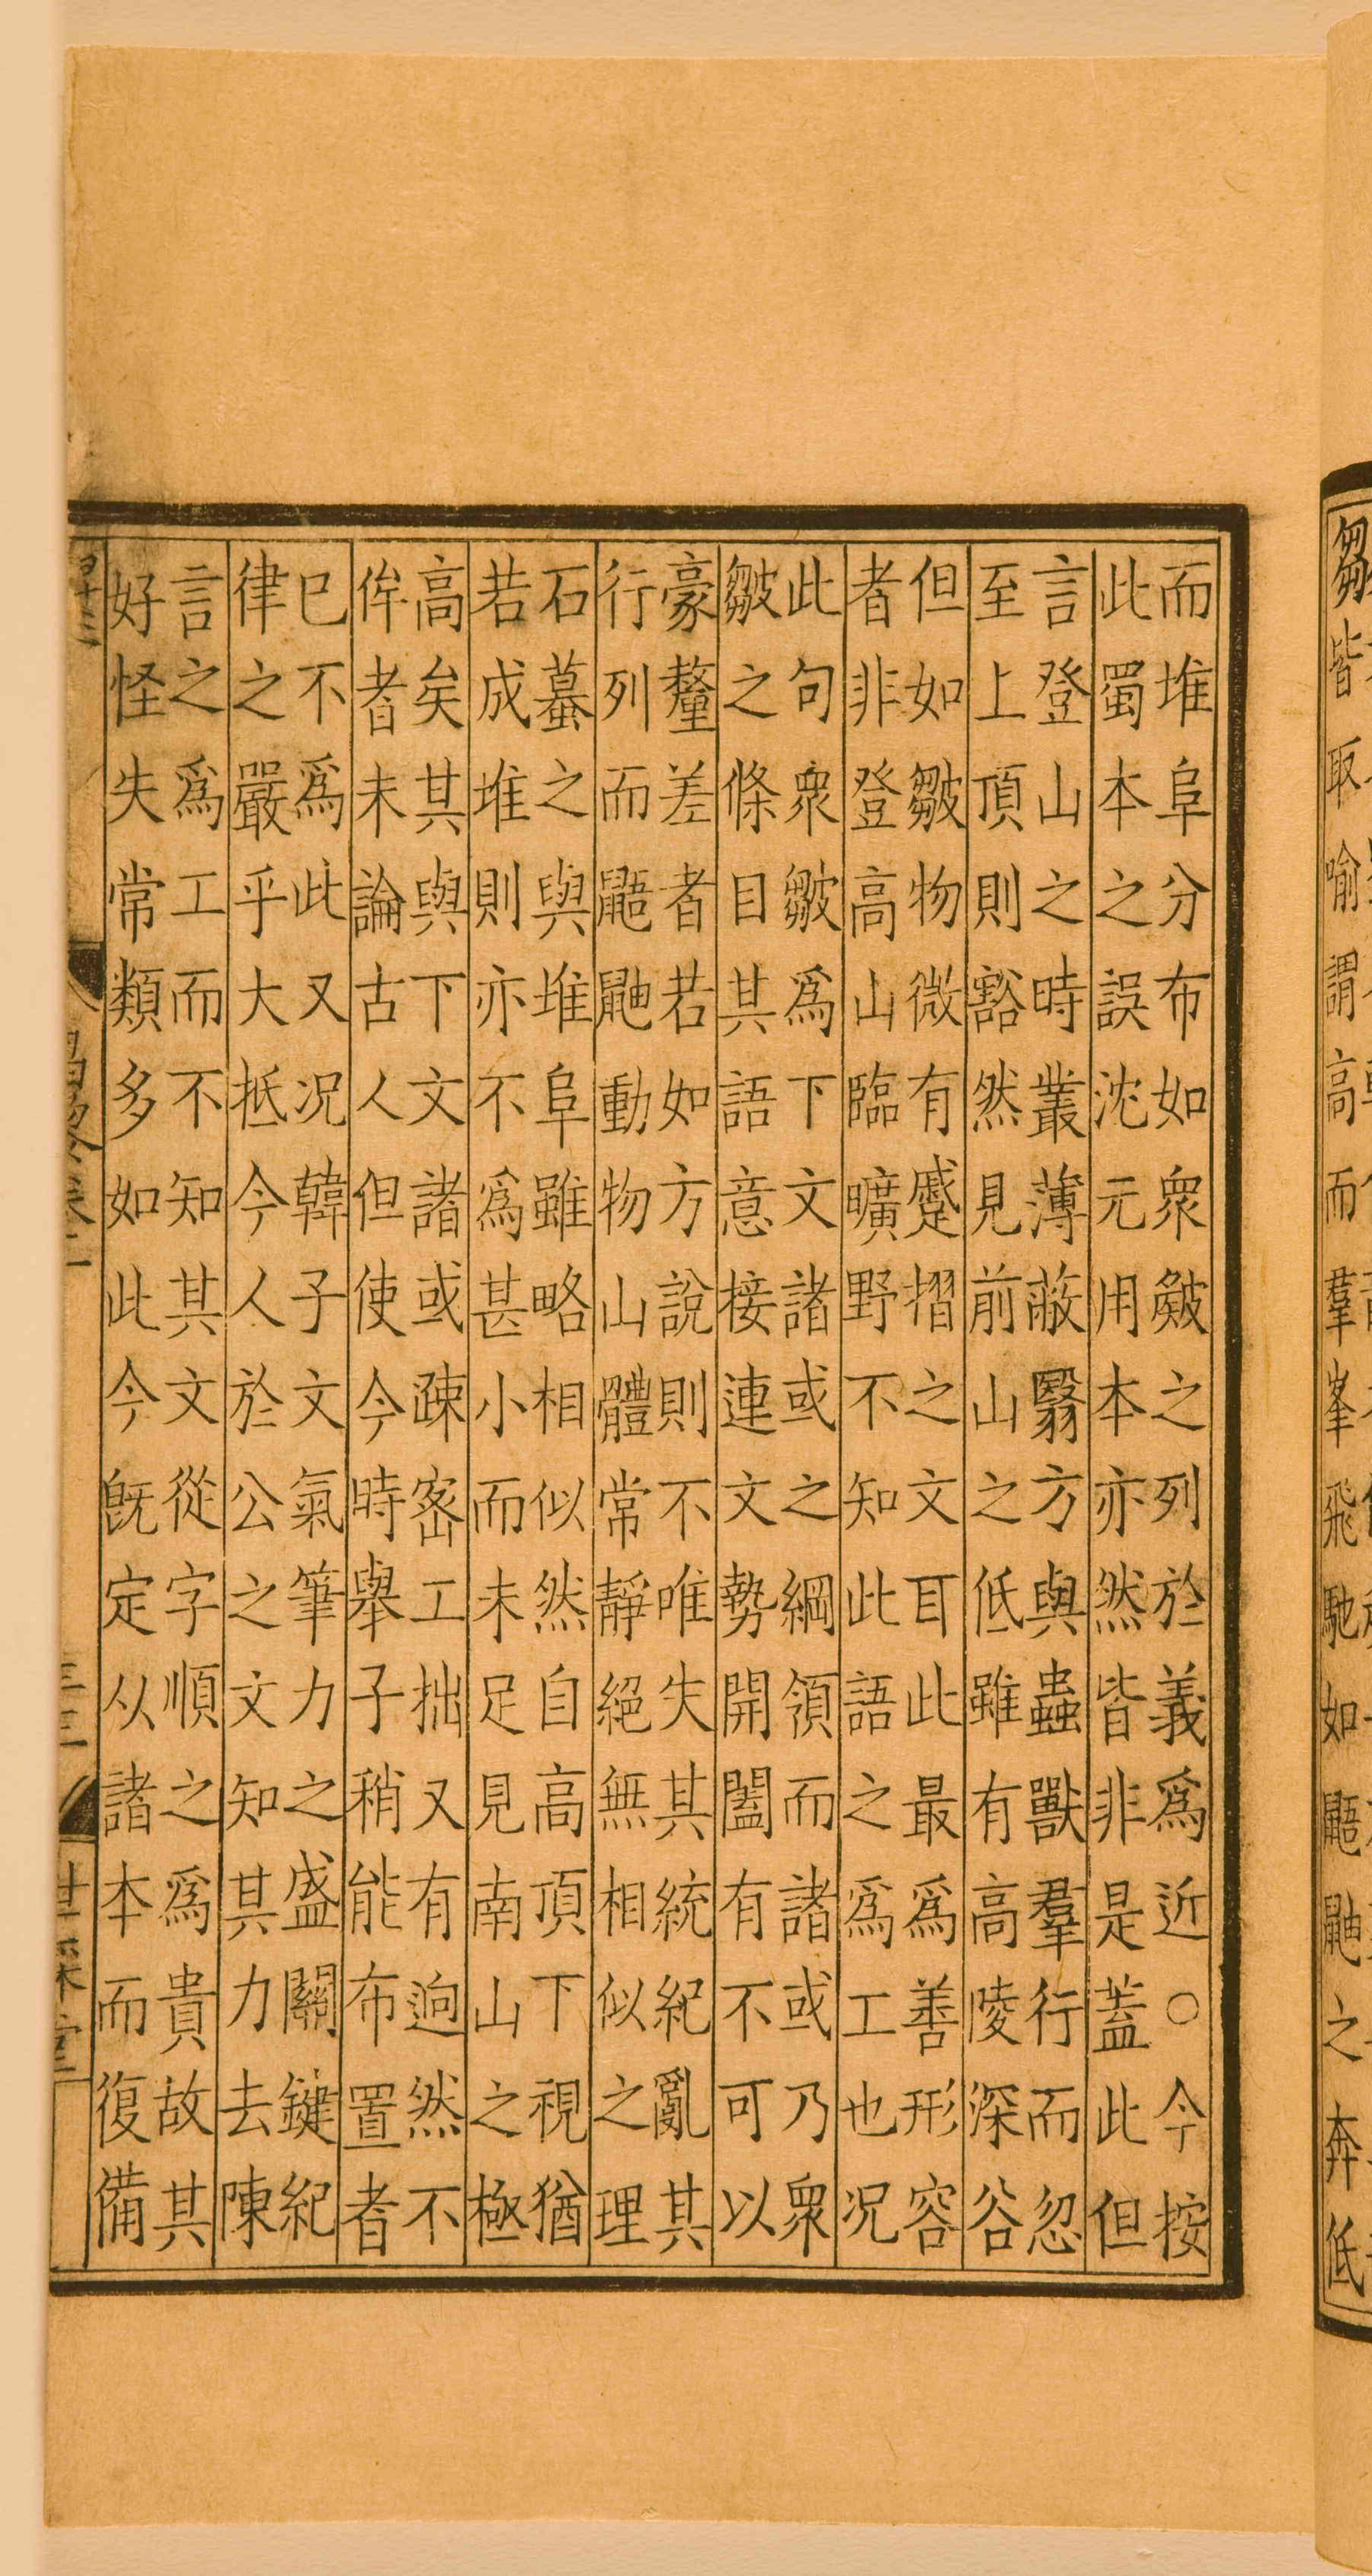 而堆阜分布如衆皴之列於義爲近○今按
此蜀本之誤沈元用本亦然皆非是蓋此但
言登山之時叢薄蔽翳方與蟲獸羣行而忽
至上頂則豁然見前山之低雖有高陵深谷
但如皺物微有蹙摺之文耳此最爲善形容
者非登高山臨曠野不知此語之爲工也况
此句衆皺爲下文諸或之綱領而諸或乃衆
皺之條目其語意接連文勢開闔有不可以
豪釐差者若如方說則不唯失其統紀亂其
行列而鼯鼬動物山體常靜絕無相似之理
石蟇之與堆阜雖略相似然自高頂下視猶
若成堆則亦不爲甚小而未足見南山之極
高矣其與下文諸或疎宻工拙又有逈然不
侔者未論古人但使今時舉子稍能布置者
已不爲此又况韓子文氣筆力之盛關鍵紀
律之嚴乎大抵今人於公之文知其力去陳
言之爲工而不知其文從字順之爲貴故其
好怪失常類多如此今旣定从諸本而復備